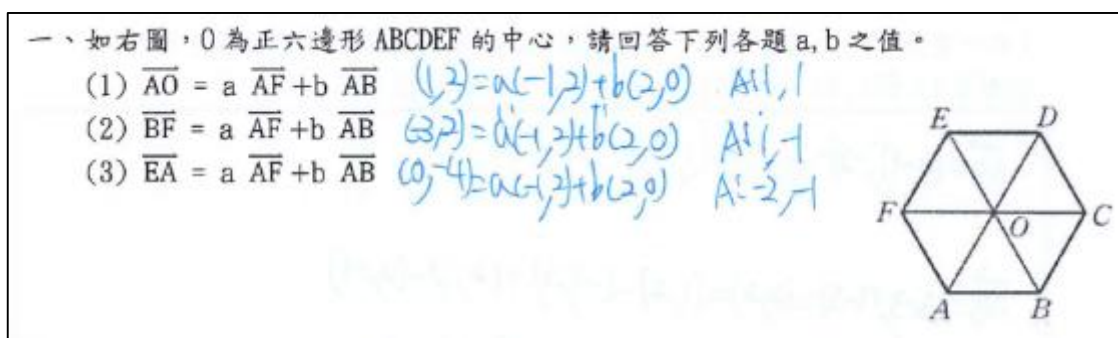 一、如右圖，O 為正六邊形 ABCDEF 的中心，請回答下列各題 a, b 之值。
(1) AO = a AF +b AB (1,2)=a(-1,2)+b(2,0) A:1,1
(2) BF = a AF +b AB (-3,2)=a(-1,2)+b(2,0) A:1,-1
(3) EA = a AF +b AB (0,-4)=a(-1,2)+b(2,0) A:-2,-1
E D
F O C
A B